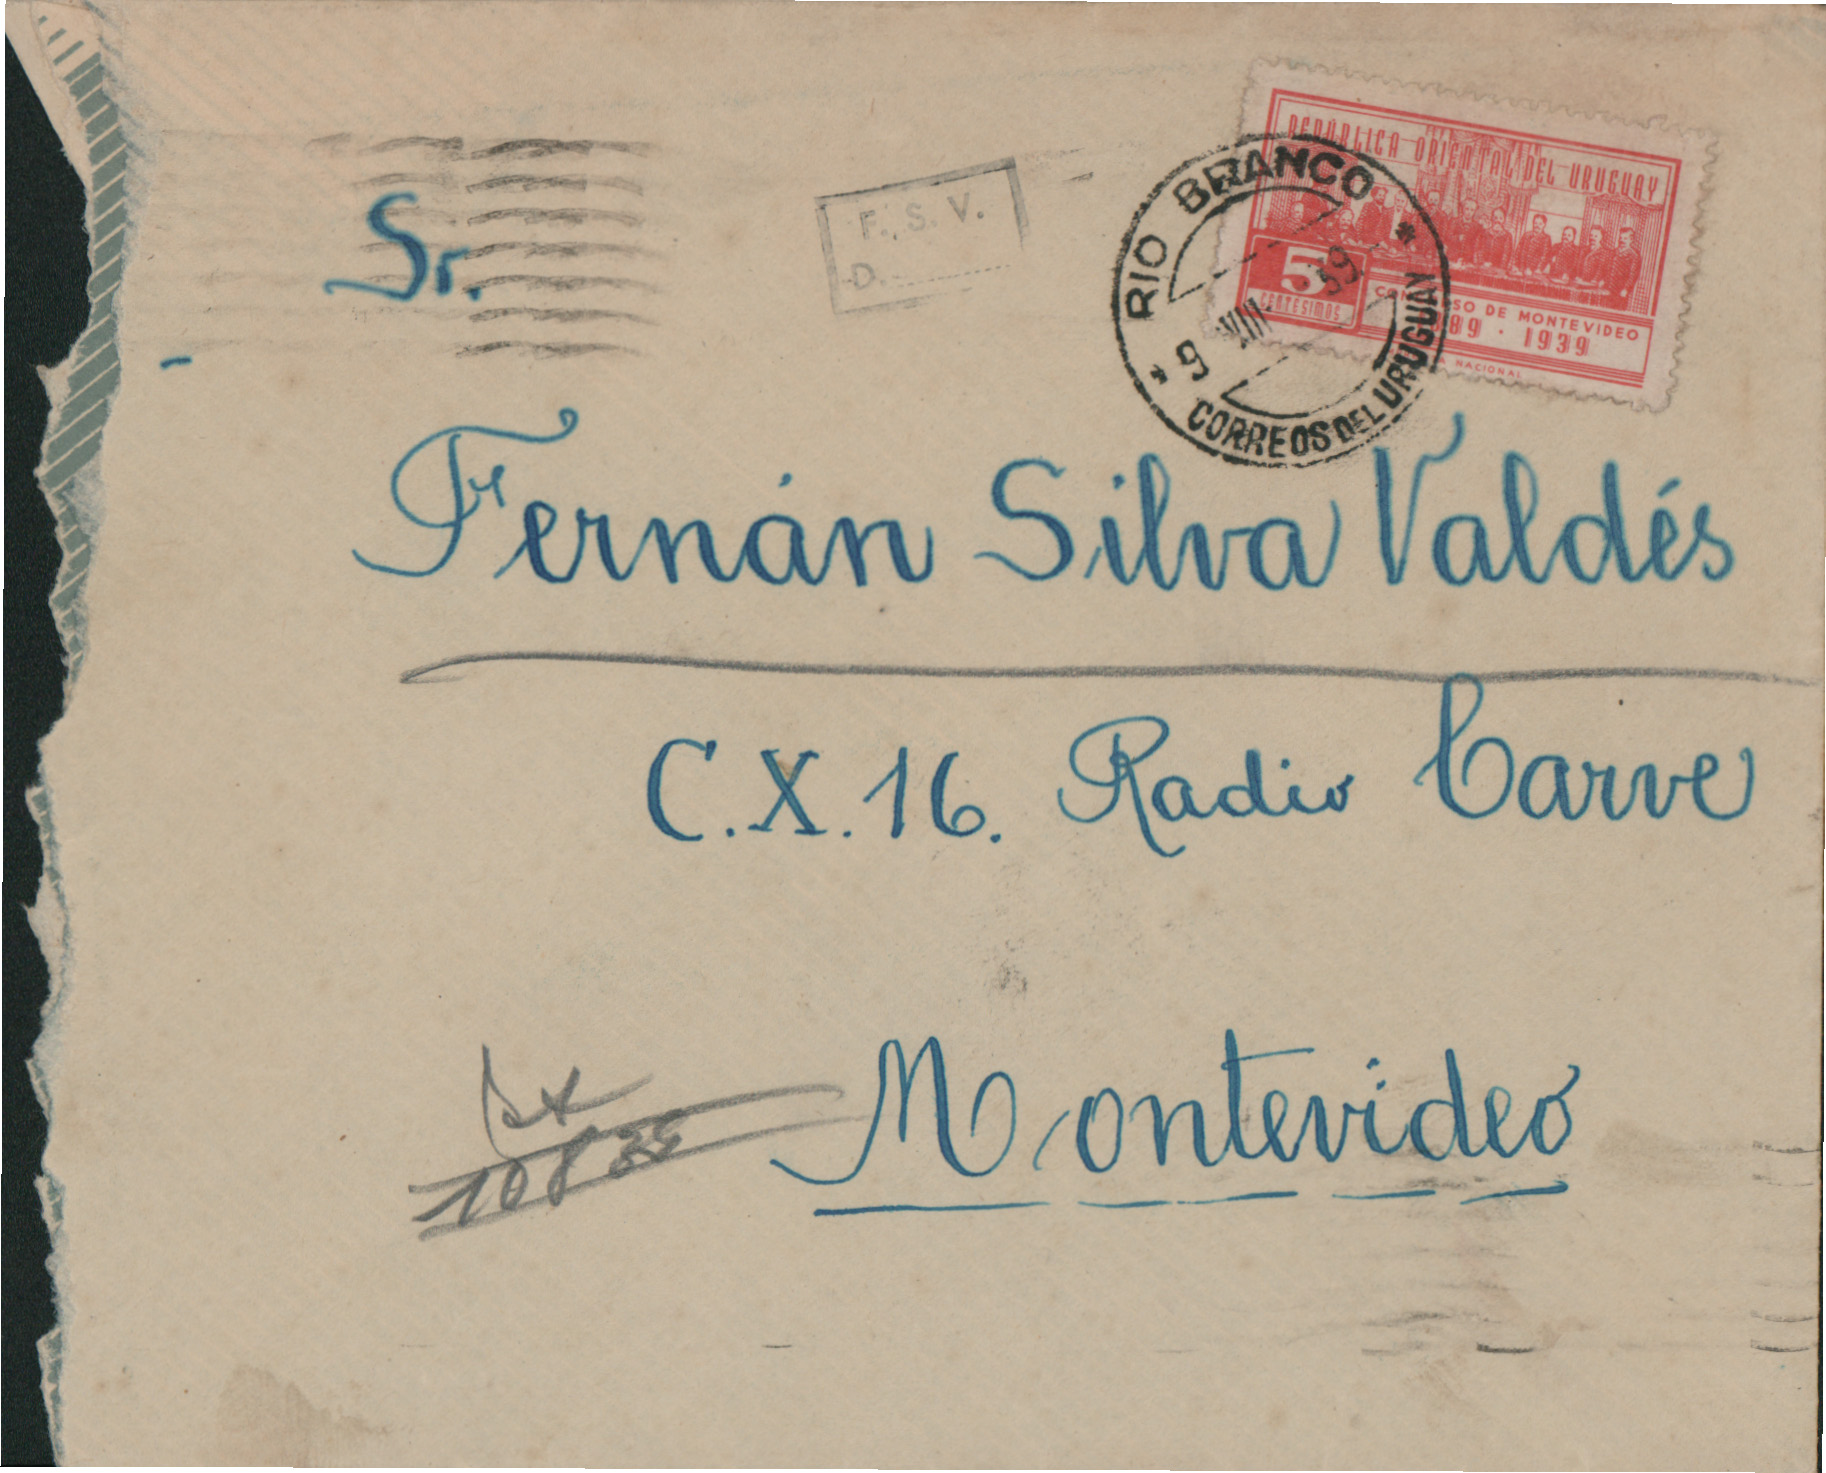 REPÚBLICA ORIENTAL DEL URUGUAY
5
CENTESIMOS
SO DE MONTEVIDEO
889 · 1939
NACIONAL
RIO BRANCO
9 VIII 39
CORREOS DEL URUGUAY
F. S. V.
D.
Sr.
Fernán Silva Valdés
C.X.16. Radio Carve
Montevideo